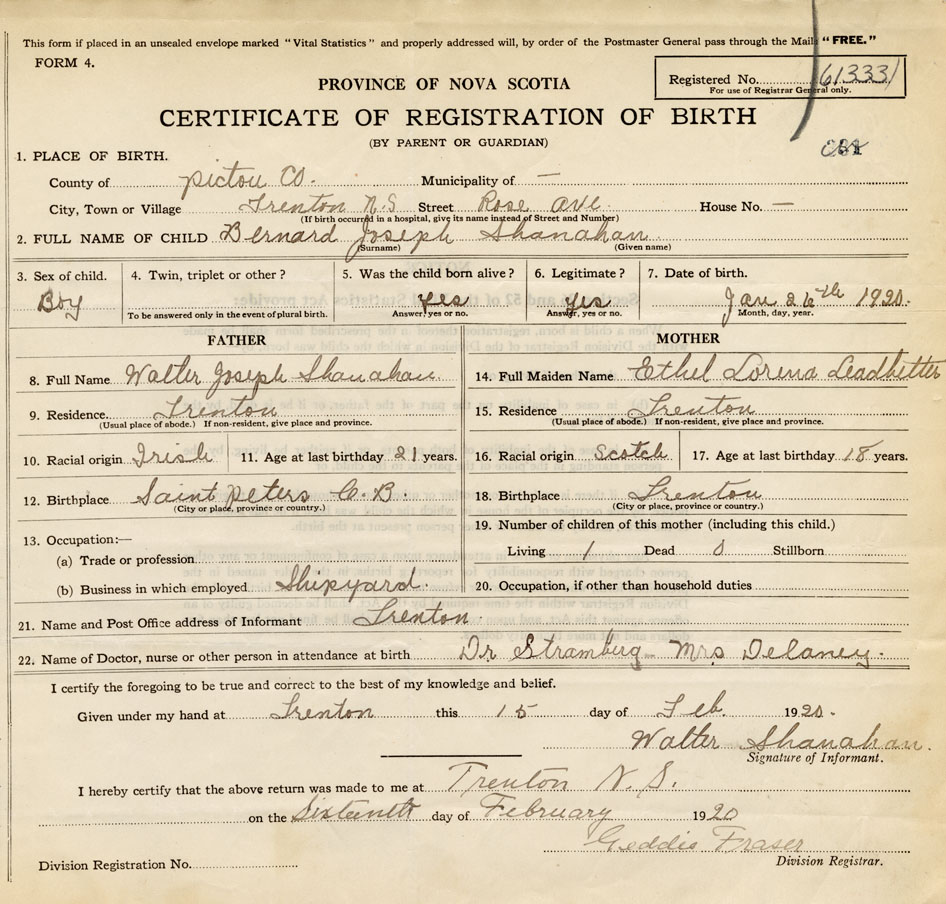 This form if placed in an unsealed envelope marked "Vital Statistics" and properly addressed will, by order of the Postmaster General pass through the Mails "FREE."
FORM 4.
PROVINCE OF NOVA SCOTIA
Registered No. 61333
For use of Registrar General only.
CERTIFICATE OF REGISTRATION OF BIRTH
(BY PARENT OR GUARDIAN)
1. PLACE OF BIRTH.
County of Pictou Co. Municipality of —
City, Town or Village Trenton N.S Street Rose ave. House No. —
(If birth occurred in a hospital, give its name instead of Street and Number)
2. FULL NAME OF CHILD Bernard Joseph Shanahan
(Surname) (Given name)
3. Sex of child. 4. Twin, triplet or other? 5. Was the child born alive? 6. Legitimate? 7. Date of birth.
Boy yes yes Jan 26th 1920.
To be answered only in the event of plural birth. Answer, yes or no. Answer, yes or no. Month, day, year.
FATHER
8. Full Name Walter Joseph Shanahan
9. Residence Trenton
(Usual place of abode.) If non-resident, give place and province.
10. Racial origin Irish 11. Age at last birthday 21 years.
12. Birthplace Saint Peters C.B.
(City or place, province or country.)
13. Occupation:—
(a) Trade or profession
(b) Business in which employed Shipyard.
MOTHER
14. Full Maiden Name Ethel Lorena Leadbetter
15. Residence Trenton
(Usual place of abode.) If non-resident, give place and province.
16. Racial origin Scotch 17. Age at last birthday 18 years.
18. Birthplace Trenton
(City or place, province or country.)
19. Number of children of this mother (including this child.)
Living 1 Dead 0 Stillborn
20. Occupation, if other than household duties
21. Name and Post Office address of Informant Trenton
22. Name of Doctor, nurse or other person in attendance at birth Dr Stramburg Mrs Delaney.
I certify the foregoing to be true and correct to the best of my knowledge and belief.
Given under my hand at Trenton this 15 day of Feb. 1920.
Walter Shanahan.
Signature of Informant.
I hereby certify that the above return was made to me at Trenton N. S.
on the Sixteenth day of February 1920
Geddie Fraser
Division Registration No. Division Registrar.